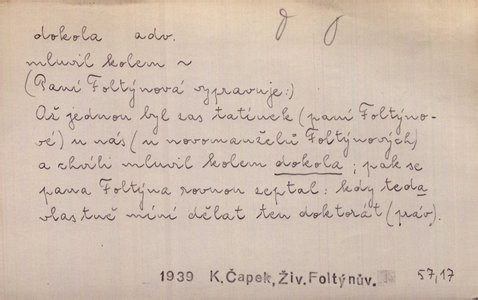 dokola adv.
mluvil kolem ~
(Paní Foltýnová vypravuje:)
Až jednou byl zas tatínek (paní Foltýno-
vé) u nás (u novomanželů Foltýnových)
a chvíli mluvil kolem dokola; pak se
pana Foltýna rovnou zeptal: kdy teda
vlastně míní dělat ten doktorát (práv).
1939 K. Čapek, Živ. Foltýnův. 57,17